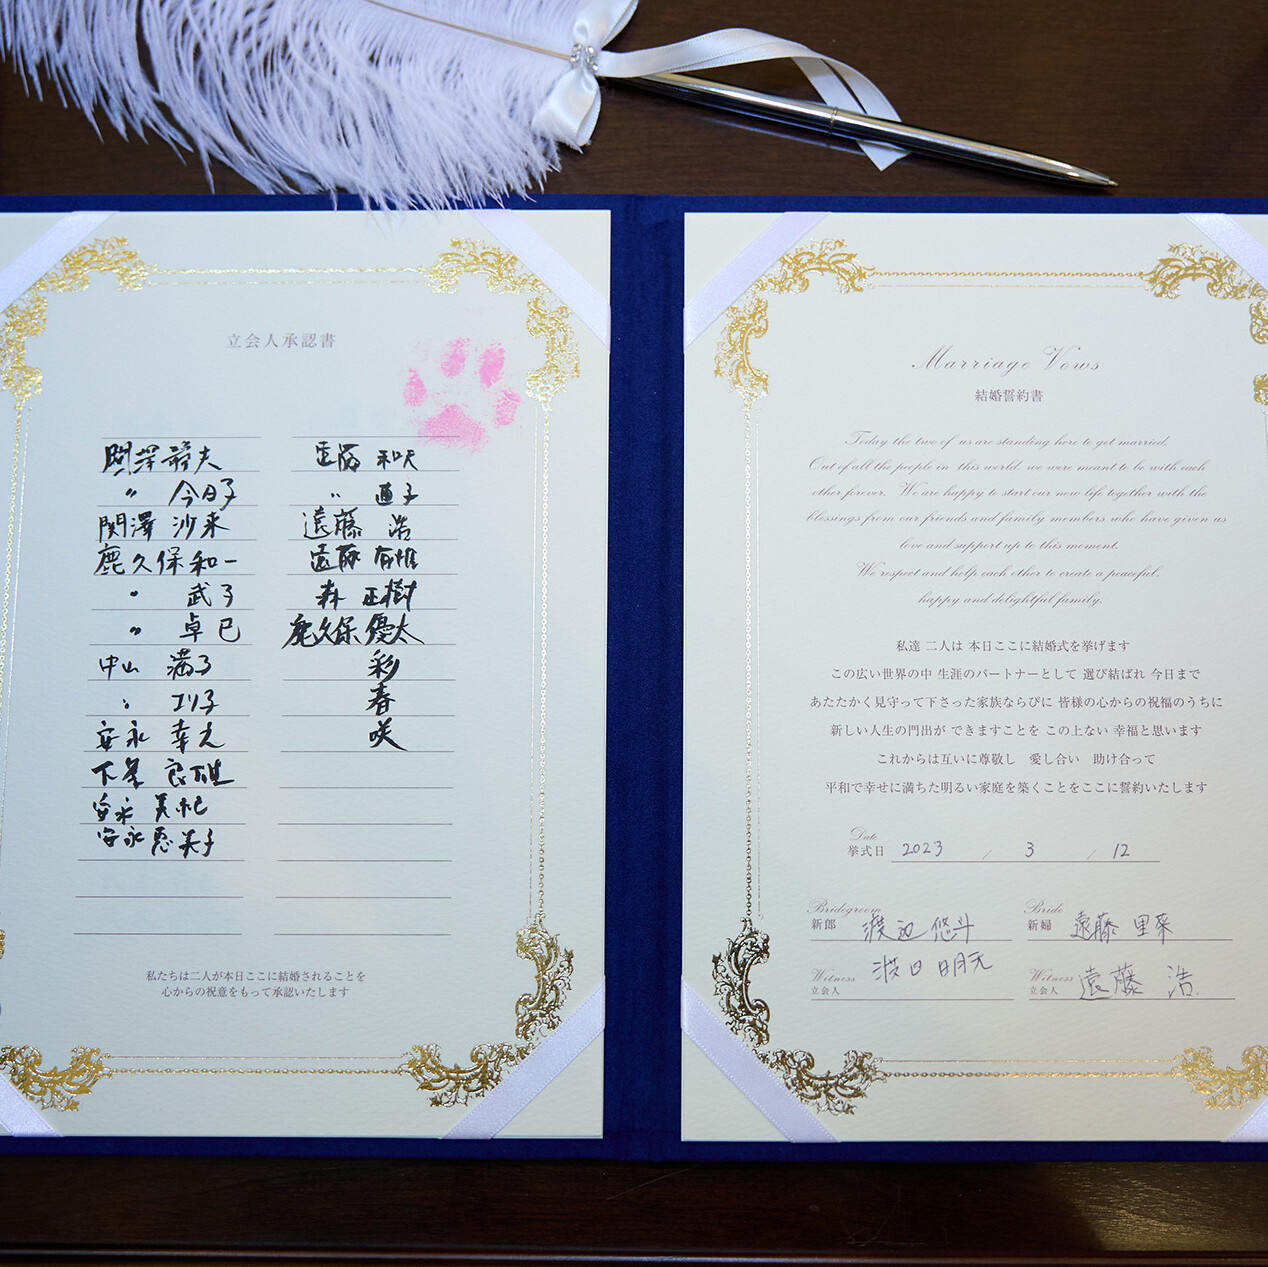 立会人承認書
関澤
〃 今日子
関澤 沙来
鹿久保和一
〃 武子
〃 卓巳
中山 満子
〃 エリ子
安永 幸夫
下条
安永 美
安永恵美子
遠藤
〃 直子
遠藤 浩
遠藤
森 正樹
鹿久保優太
彩
春
咲
私たちは二人が本日ここに結婚されることを
心からの祝意をもって承認いたします
Marriage Vows
結婚誓約書
Today the two of us are standing here to get married.
Out of all the people in this world, we were meant to be with each
other forever. We are happy to start our new life together with the
blessings from our friends and family members who have given us
love and support up to this moment.
We respect and help each other to create a peaceful,
happy and delightful family.
私達 二人は 本日ここに結婚式を挙げます
この広い世界の中 生涯のパートナーとして 選び結ばれ 今日まで
あたたかく見守って下さった家族ならびに 皆様の心からの祝福のうちに
新しい人生の門出が できますことを この上ない 幸福と思います
これからは互いに尊敬し 愛し合い 助け合って
平和で幸せに満ちた明るい家庭を築くことをここに誓約いたします
Date
挙式日 2023 / 3 / 12
Bridegroom
新郎 渡辺 悠斗
Bride
新婦 遠藤 里菜
Witness
立会人
Witness
立会人 遠藤 浩